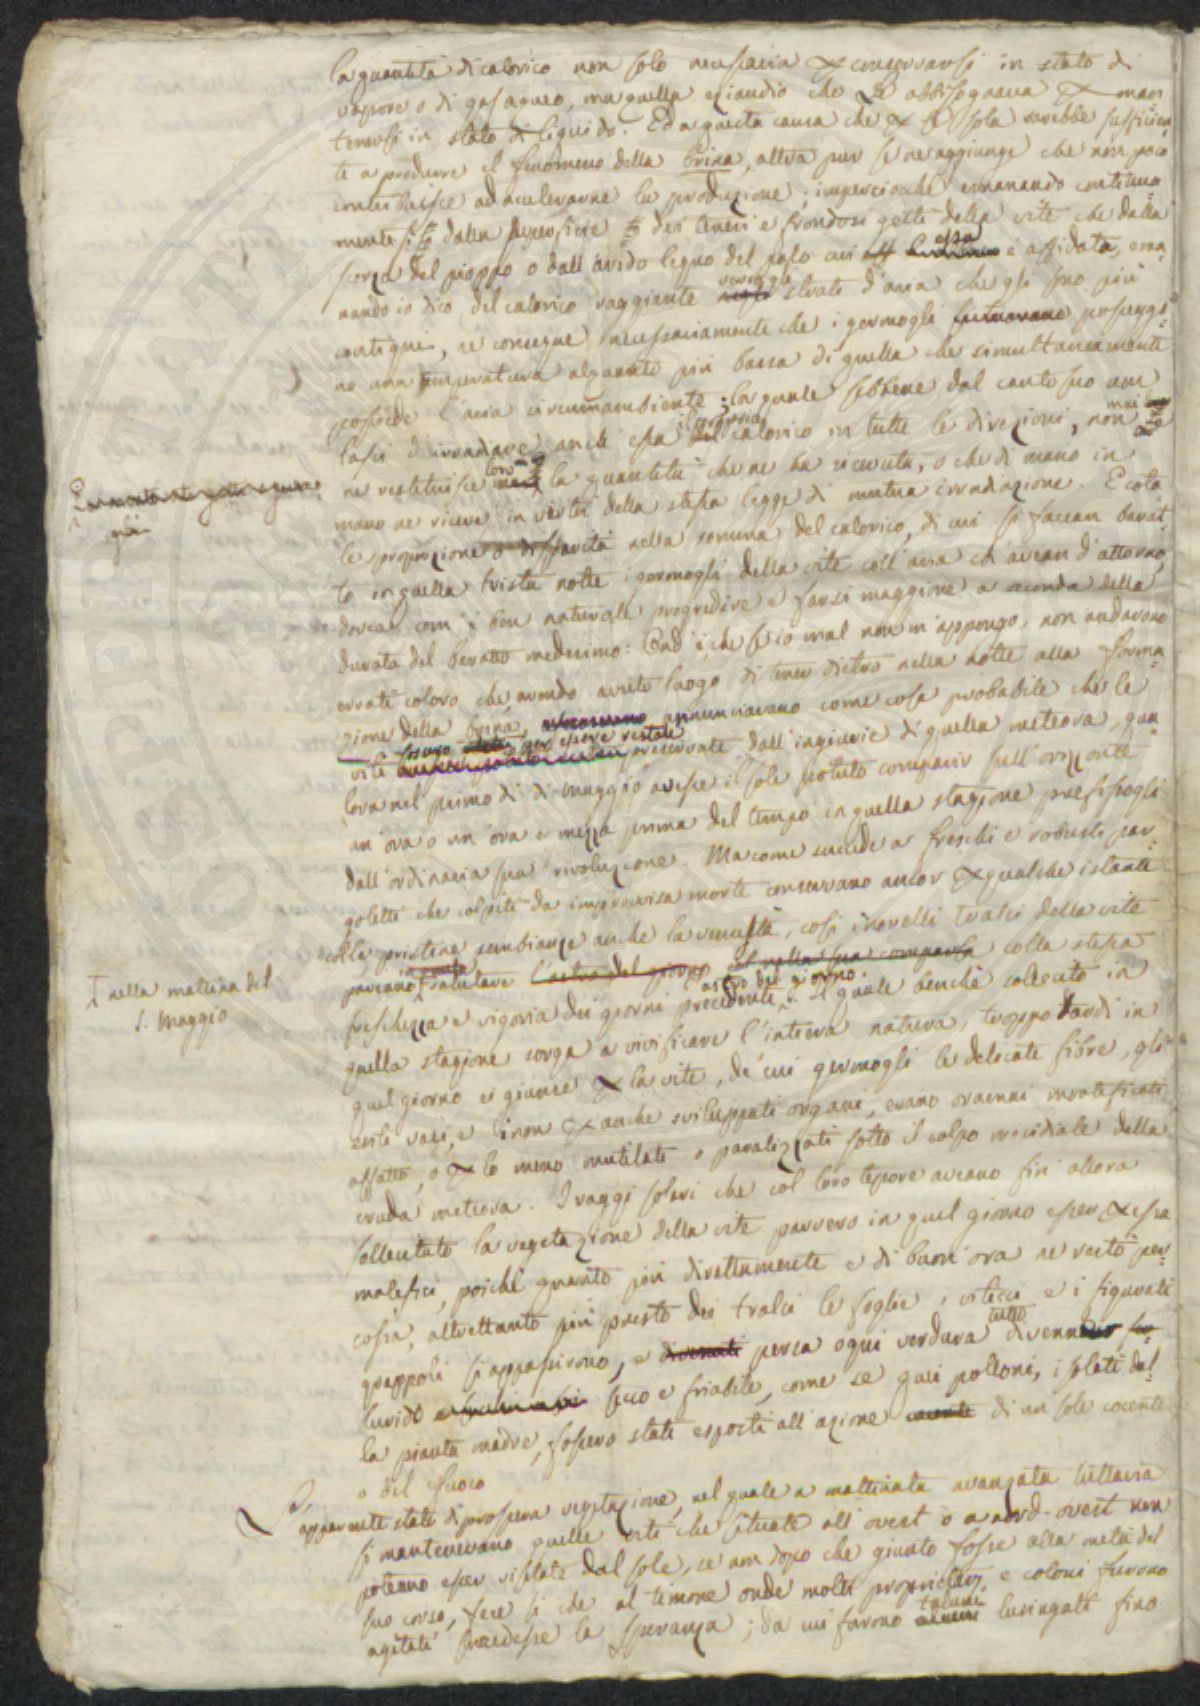 la quantità di calorico non solo necessaria per conservarsi in stato di
vapore o di gas aqueo, ma quella eziandio che abbisognava per man
tenersi in stato di liquido. Ed a questa causa che per se sola sarebbe sufficien
te a produrre il fenomeno della brina, altra pur se ne aggiunge che non poco
contribuisce ad accelerarne la produzione; imperciocchè emanando continua
mente sì dalla superficie dei teneri e frondosi getti della vite che dalla
scorza del pioppo o dall'arido legno del palo cui essa è affidata, ema
nando io dico del calorico raggiante verso gli strati d'aria che gli sono più
contigui, ne consegue necessariamente che i germogli posseggo
no una temperatura alquanto più bassa di quella che simultaneamente
possiede l'aria circumambiente; la quale sebbene dal canto suo non
lasci d'irradiare anch'essa il proprio calorico in tutte le direzioni, non mai
ne restituisce loro la quantità che ne ha ricevuta, o che di mano in
mano ne riceve in virtù della stessa legge di mutua irradiazione. E cota
le sproporzione o disparità nella somma del calorico, di cui si facean barat
to in quella trista notte i germogli della vite coll'aria ch'avean d'attorno,
dovea com'è ben naturale progredire e farsi maggiore a seconda della
durata del baratto medesimo: Ond'è, che se io mal non m'appongo, non andarono
errati coloro che, avendo avuto luogo di tener dietro nella notte alla forma
zione della brina, annunciavano come cosa probabile che le
viti fossero per essere restate preservate dall'ingiurie di quella meteora, qua
lora nel primo dì di maggio avesse il sole potuto comparir sull'orizzonte
un'ora o un'ora e mezza prima del tempo in quella stagione prefissogli
dall'ordinaria sua rivoluzione. Ma come succede a' freschi e robusti par
goletti che colpiti da improvvisa morte conservano ancor per qualche istante
colle pristine sembianze anche la venustà, così i novelli tralci della vite
pareano salutare l'astro del giorno nella sua comparsa colla stessa
freschezza e vigoria dei giorni precedenti astro del giorno. Il quale benchè collocato in
nella mattina del
1. Maggio
quella stagione sorga a vivificare l'intiera natura, troppo tardi in
quel giorno ei giunse per la vite, de' cui germogli le delicate fibre, gli
esili vasi, e i non per anche sviluppati organi, erano oramai mortificati
affatto, o per lo meno mutilati o paralizzati sotto il colpo micidiale della
cruda meteora. I raggi solari che col loro tepore aveano fin allora
sollecitato la vegetazione della vite parvero in quel giorno esser per essa
malefici, poichè quanto più direttamente e di buon'ora ne restò per
cossa, altrettanto più presto dei tralci le foglie, i viticci e i figurati
grappoli si appassirono, e persa ogni verdura tutto divenne
luvido secco e friabile, come se quei polloni, isolati dal
la pianta madre, fossero stati esposti all'azione di un sole cocente
o del fuoco
apparente stato di prospera vegetazione, nel quale a mattinata avanzata tuttavia
si mantenevano quelle viti che situate all'ovest o a nord-ovest non
poteano esser visitate dal sole, se non dopo che giunto fosse alla metà del
suo corso, fece sì che al timone onde molti proprietarj e coloni furono
agitati succedesse la speranza; da cui furono taluni lusingati fino